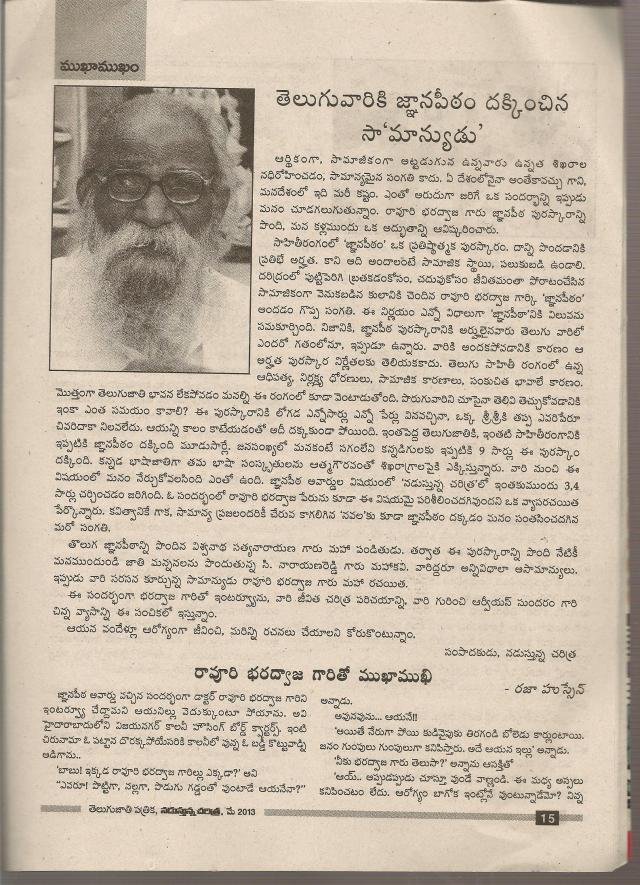 ముఖాముఖం
తెలుగువారికి జ్ఞానపీఠం దక్కించిన
సా‘మాన్యుడు’
ఆర్థికంగా, సామాజికంగా అట్టడుగున ఉన్నవారు ఉన్నత శిఖరాల
నధిరోహించడం, సామాన్యమైన సంగతి కాదు. ఏ దేశంలోనైనా అంతేకావచ్చు గాని,
మనదేశంలో ఇది మరీ కష్టం. ఎంతో అరుదుగా జరిగే ఒక సందర్భాన్ని ఇప్పుడు
మనం చూడగలుగుతున్నాం. రావూరి భరద్వాజ గారు జ్ఞానపీఠ పురస్కారాన్ని
పొంది, మన కళ్లముందు ఒక అద్భుతాన్ని ఆవిష్కరించారు.
సాహితీరంగంలో ‘జ్ఞానపీఠం’ ఒక ప్రతిష్ఠాత్మక పురస్కారం. దాన్ని పొందడానికి
ప్రతిభే అర్హత. కాని అది అందాలంటే సామాజిక స్థాయి, పలుకుబడి ఉండాలి.
దరిద్రంలో పుట్టిపెరిగి బ్రతకడంకోసం, చదువుకోసం జీవితమంతా పోరాటంచేసిన
సామాజికంగా వెనుకబడిన కులానికి చెందిన రావూరి భరద్వాజ గార్కి ‘జ్ఞానపీఠం’
అందడం గొప్ప సంగతి. ఈ నిర్ణయం ఎన్నో విధాలుగా ‘జ్ఞానపీఠా’నికి విలువను
సమకూర్చింది. నిజానికి, జ్ఞానపీఠ పురస్కారానికి అర్హులైనవారు తెలుగు వారిలో
ఎందరో గతంలోనూ, ఇప్పుడూ ఉన్నారు. వారికి అందకపోవడానికి కారణం ఆ
అర్హత పురస్కార నిర్ణేతలకు తెలియకకాదు. తెలుగు సాహితీ రంగంలో ఉన్న
ఆధిపత్య, నిర్లక్ష్య ధోరణులు, సామాజిక కారణాలు, సంకుచిత భావాలే కారణం.
మొత్తంగా తెలుగుజాతి భావన లేకపోవడం మనల్ని ఈ రంగంలో కూడా వెంటాడుతోంది. పొరుగువారిని చూసైనా తెలివి తెచ్చుకోవడానికి
ఇంకా ఎంత సమయం కావాలి? ఈ పురస్కారానికి లోగడ ఎన్నోసార్లు ఎన్నో పేర్లు వినవచ్చినా, ఒక్క శ్రీ.శ్రీ.కి తప్ప ఎవరిపేరూ
చివరిదాకా నిలవలేదు. ఆయన్ని కాలం కాటేయడంతో అదీ దక్కకుండా పోయింది. ఇంతపెద్ద తెలుగుజాతికి, ఇంతటి సాహితీరంగానికి
ఇప్పటికి జ్ఞానపీఠం దక్కింది మూడుసార్లే. జనసంఖ్యలో మనకంటే సగంలేని కన్నడిగులకు ఇప్పటికి 9 సార్లు ఈ పురస్కాం
దక్కింది. కన్నడ భాషాజాతిగా తమ భాషా సంస్కృతులను ఆత్మగౌరవంతో శిఖరాగ్రాలపైకి ఎక్కిస్తున్నారు. వారి నుంచి ఈ
విషయంలో మనం నేర్చుకోవలసింది ఎంతో ఉంది. జ్ఞానపీఠ అవార్డుల విషయంలో ‘నడుస్తున్న చరిత్ర’లో ఇంతకుముందు 3,4
సార్లు చర్చించడం జరిగింది. ఓ సందర్భంలో రావూరి భరద్వాజ పేరును కూడా ఈ విషయమై పరిశీలించదగినవుందని ఒక వ్యాసరచయిత
పేర్కొన్నారు. కవిత్వానికే గాక, సామాన్య ప్రజలందరికీ చేరువ కాగలిగిన ‘నవల’కు కూడా జ్ఞానపీఠం దక్కడం మనం సంతసించదగిన
మరో సంగతి.
తొలుగ జ్ఞానపీఠాన్ని పొందిన విశ్వనాథ సత్యనారాయణ గారు మహా పండితుడు. తర్వాత ఈ పురస్కారాన్ని పొంది నేటికీ
మనముందుండి జాతి మన్ననలను పొందుతున్న సి. నారాయణరెడ్డి గారు మహాకవి. వారిద్దరూ అన్నివిధాలా అసామాన్యులు.
ఇప్పుడు వారి సరసన కూర్చున్న సామాన్యుడు రావూరి భరద్వాజ గారు మహా రచయిత.
ఈ సందర్భంగా భరద్వాజ గారితో ఇంటర్వ్యూను, వారి జీవిత చరిత్ర పరిచయాన్ని, వారి గురించి ఆర్వీయస్ సుందరం గారి
చిన్న వ్యాసాన్ని ఈ సంచికలో ఇస్తున్నాం.
ఆయన వందేళ్లూ ఆరోగ్యంగా జీవించి, మరిన్ని రచనలు చేయాలని కోరుకొంటున్నాం.
సంపాదకుడు, నడుస్తున్న చరిత్ర
రావూరి భరద్వాజ గారితో ముఖాముఖి
- రజా హుస్సేన్
జ్ఞానపీఠ అవార్డు వచ్చిన సందర్భంగా డాక్టర్ రావూరి భరద్వాజ గారిని
ఇంటర్వ్యూ చేద్దామని ఆయనిల్లు వెదుక్కుంటూ పోయాను. అవి
హైదరాబాదులోని విజయనగర్ కాలనీ హౌసింగ్ బోర్డ్ క్వార్టర్స్. ఇంటి
చిరునామా ఓ పట్టాన దొరక్కపోయేసరికి కాలనీలో వున్న ఓ బడ్డీ కొట్టువాడ్ని
అడిగాను..
‘బాబు! ఇక్కడ రావూరి భరద్వాజ గారిల్లు ఎక్కడా?’ అని
“ఎవరూ! పొట్టిగా, నల్లగా, పొడుగు గడ్డంతో వుంటాడే ఆయనేనా?”
అన్నాడు.
అవునవును... ఆయనే!!
‘అయితే నేరుగా పోయి కుడివైపుకు తిరగండి బోలెడు కార్లుంటాయి.
జనం గుంపులు గుంపులుగా కనిపిస్తారు. అదే ఆయన ఇల్లు’ అన్నాడు.
‘నీకు భరద్వాజ గారు తెలుసా?’ అన్నాను ఆసక్తితో
‘ఆయ్.. అప్పుడప్పుడు చూస్తూ వుండే వాణ్ణండి. ఈ మధ్య అస్సలు
కనిపించటం లేదు. ఆరోగ్యం బాగోక ఇంట్లోనే వుంటున్నాడేమో? నిన్న
తెలుగుజాతి పత్రిక, నడుస్తున్నచరిత్ర, మే 2013
15